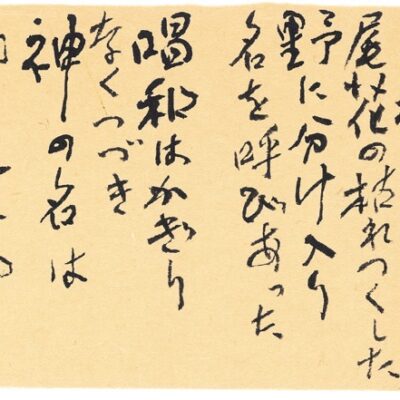 尾花の枯れつくした
野に分け入り
名を呼びあった
唱和はかぎり
なくつづき
神の名は